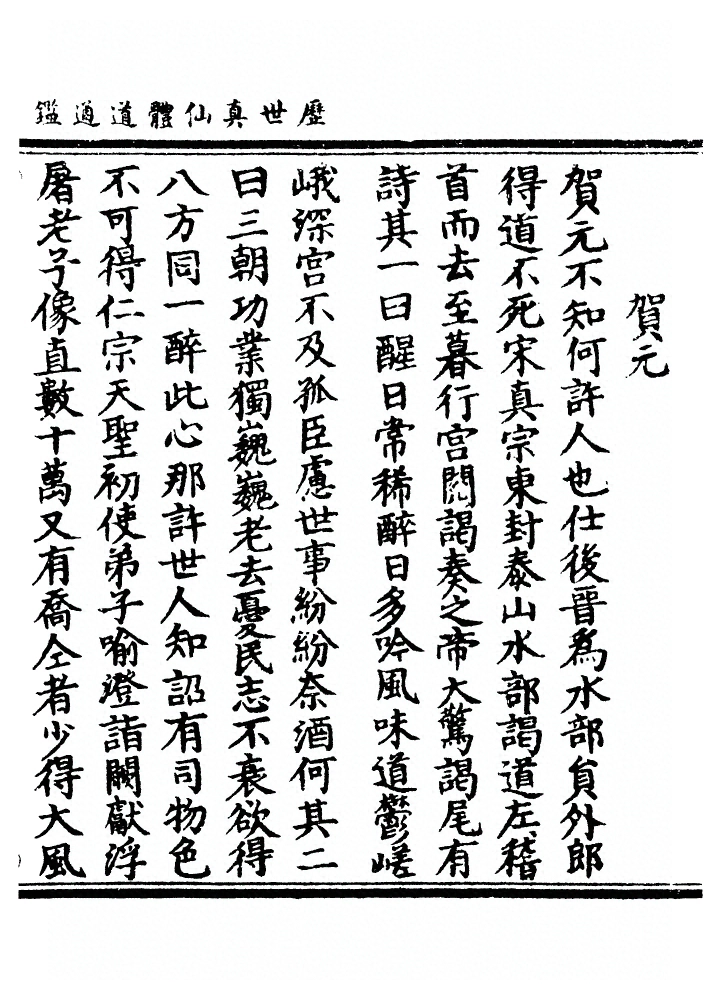 歷世真仙體道通鑑
賀元
賀元不知何許人也仕後晉為水部負外郎
得道不死宋真宗東封泰山水部謁道左稽
首而去至暮行宮閱謁奏之帝大驚謁尾有
詩其一曰醒日常稀醉日多吟風味道鬱嵯
峨深宮不及孤臣慮世事紛紛奈酒何其二
曰三朝功業獨巍巍老去憂民志不衰欲得
八方同一醉此心那許世人知詔有司物色
不可得仁宗天聖初使弟子喻澄詣闕獻浮
屠老子像直數十萬又有喬仝者少得大風